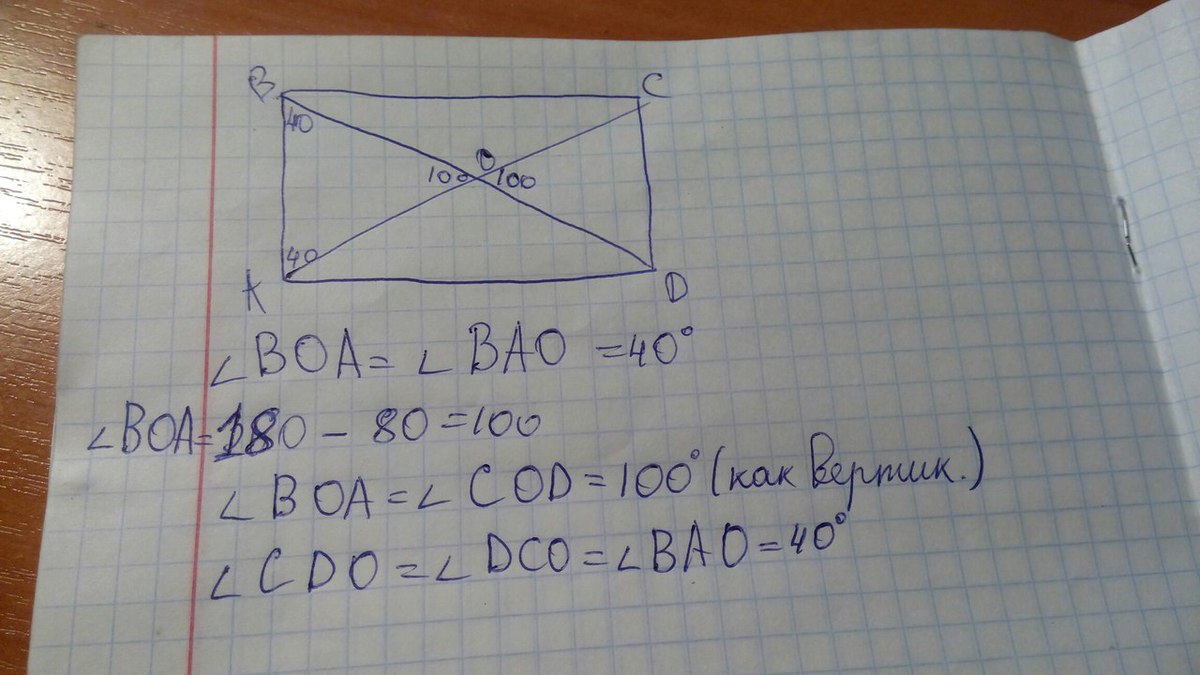 B C
40
O
100 100
40
A D
∠BOA = ∠BAO = 40°
∠BOA = 180 - 80 = 100
∠BOA = ∠COD = 100° (как вертик.)
∠CDO = ∠DCO = ∠BAO = 40°